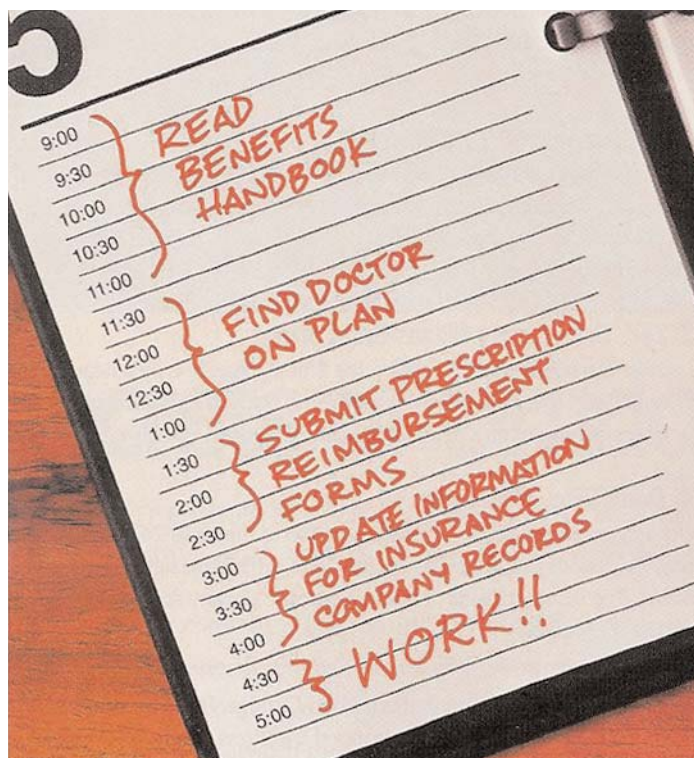 9:00
9:30
10:00
10:30
11:00
11:30
12:00
12:30
1:00
1:30
2:00
2:30
3:00
3:30
4:00
4:30
5:00
READ
BENEFITS
HANDBOOK
FIND DOCTOR
ON PLAN
SUBMIT PRESCRIPTION
REIMBURSEMENT
FORMS
UPDATE INFORMATION
FOR INSURANCE
COMPANY RECORDS
WORK!!